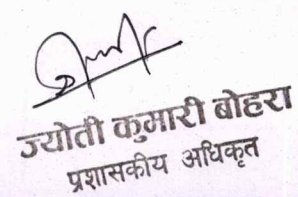 ज्योती कुमारी बोहरा
प्रशासकीय अधिकृत